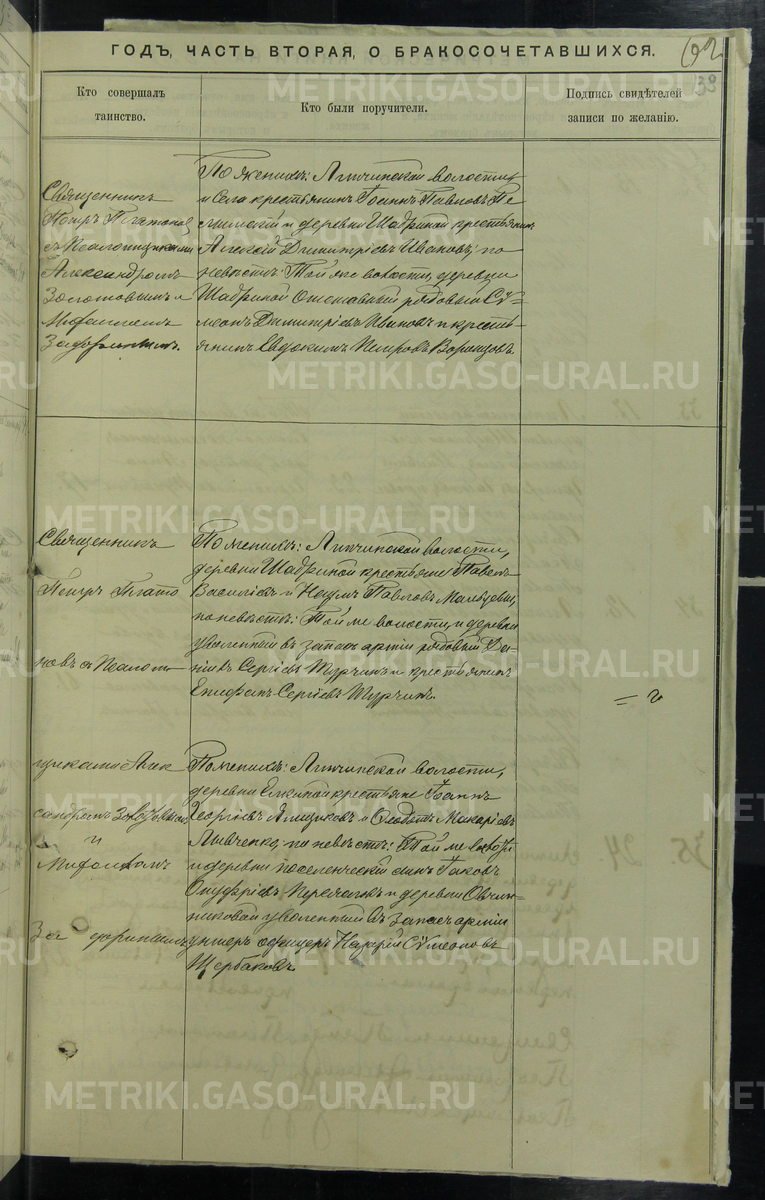 ГОДЪ, ЧАСТЬ ВТОРАЯ, О БРАКОСОЧЕТАВШИХСЯ.
Кто совершалъ
таинство.
Кто были поручители.
Подпись свидѣтелей
записи по желанію.
Священникъ
Петръ Платоновъ
съ Псаломщиками
Александромъ
Золотовымъ и
Мифаиломъ
По женихѣ: Липчинской волости
и Села крестьянинъ Іоаннъ Павловъ
и деревни Шадриной крестьянинъ
Алексѣй Димитріевъ Ивановъ; по
невѣстѣ: Той же волости, деревни
Шадриной Отставной рядовый Сѵ-
меонъ Димитріевъ Ивановъ и кресть-
янинъ Евдокимъ Петровъ
Священникъ
Петръ Плато
новъ съ Псалом
По женихѣ: Липчинской волости,
деревни Шадриной крестьяне Павелъ
Василіевъ и Наумъ Павловъ Мальцевы,
по невѣстѣ: Той же волости и деревни
уволенный въ запасъ арміи рядовый Да-
ніилъ Сергіевъ Турчинъ и крестьянинъ
Епифанъ Сергіевъ Турчинъ.
щиками Алек
сандромъ
и
По женихѣ: Липчинской волости,
деревни крестьяне Іоаннъ
Георгіевъ Ямщиковъ и Ѳеодотъ Макаріевъ
по невѣстѣ: Той же
и деревни поселенческій сынъ Іаковъ
Онуфріевъ и деревни Овчин-
никовой уволенный въ Запасъ арміи
унтеръ офицеръ Назарій Сѵмеоновъ
Щербаковъ.
METRIKI.GASO-URAL.RU